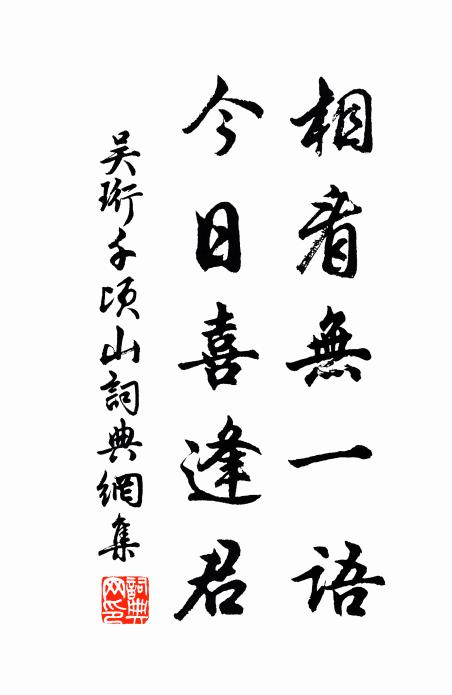 相看無一語
今日喜逢君
吳珩千頃山詞典網集
詞典網印